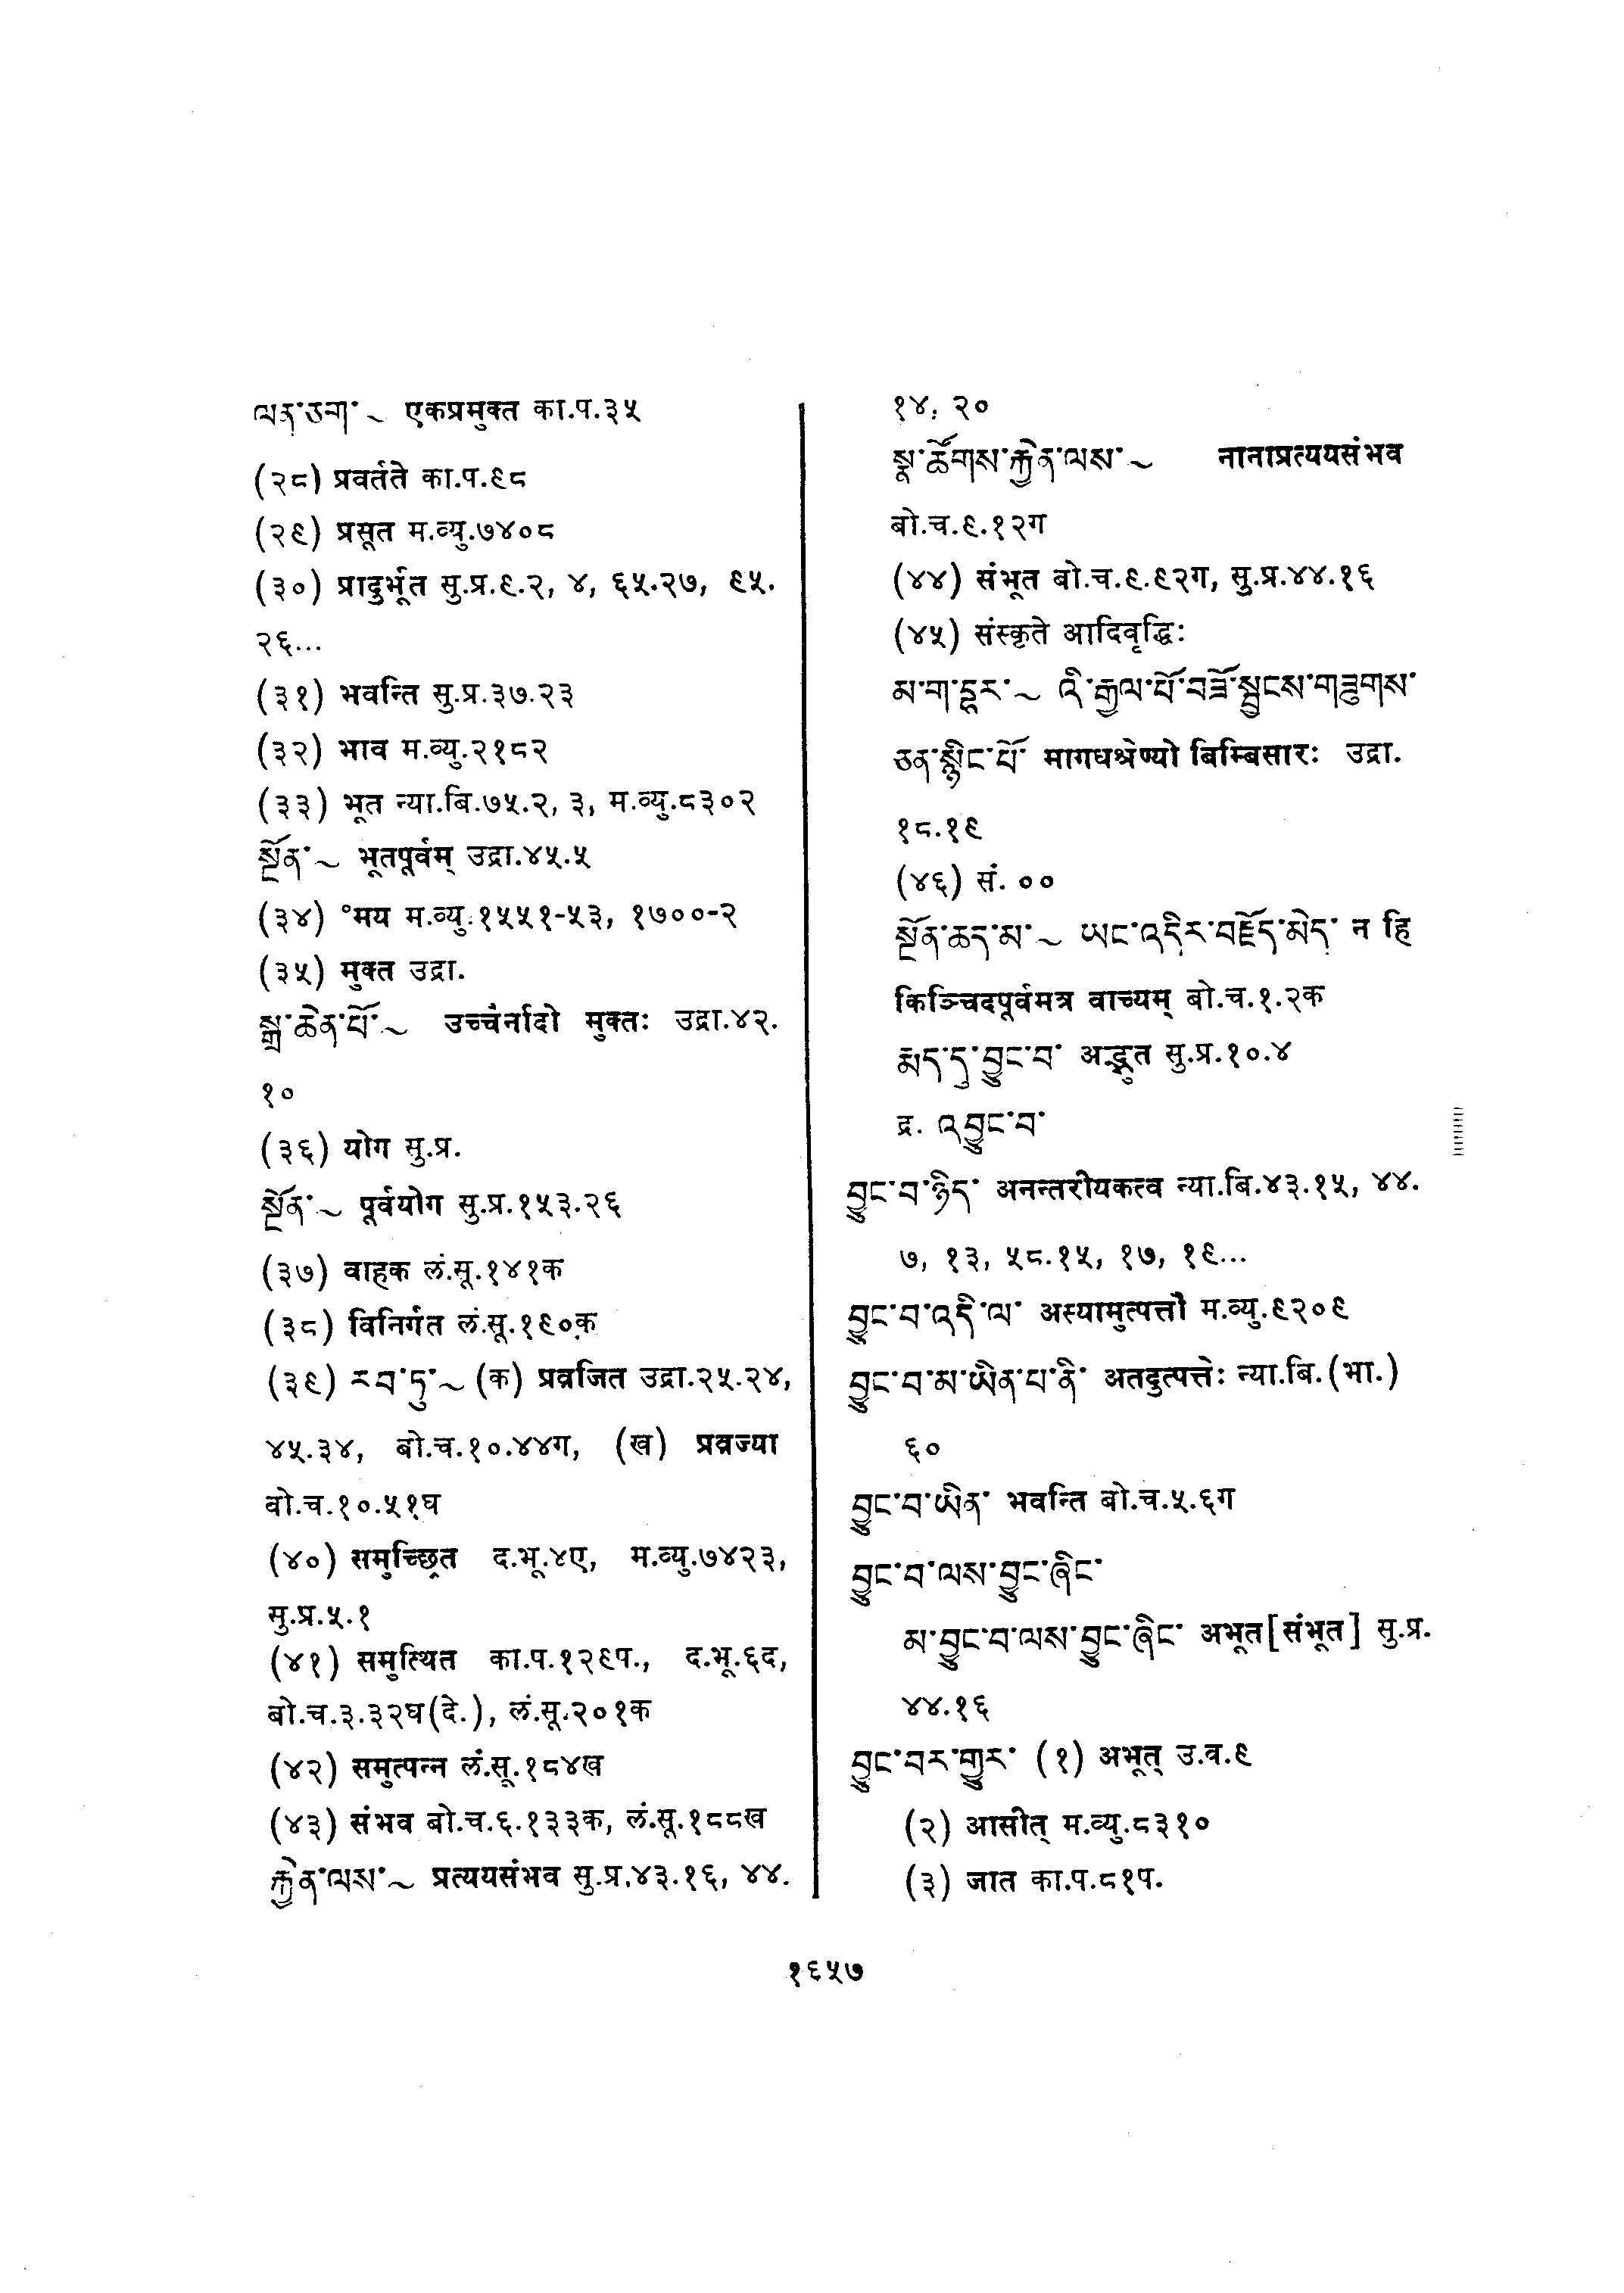 ལན་ཅག་ ~ एकप्रमुक्त का.प.३५
(२८) प्रवर्तते का.प.९८
(२९) प्रसूत म.व्यु.७४०८
(३०) प्रादुर्भूत सु.प्र.९.२, ४, ६५.२७, ९५.
२६...
(३१) भवन्ति सु.प्र.३७.२३
(३२) भाव म.व्यु.२१८२
(३३) भूत न्या.बि.७५.२, ३, म.व्यु.८३०२
སྔོན་ ~ भूतपूर्वम् उद्रा.४५.५
(३४) °मय म.व्यु.१५५१-५३, १७००-२
(३५) मुक्त उद्रा.
སྒྲ་ཆེན་པོ་ ~ उच्चंर्नादो मुक्तः उद्रा.४२.
१०
(३६) योग सु.प्र.
སྔོན་ ~ पूर्वयोग सु.प्र.१५३.२६
(३७) वाहक लं.सू.१४१क
(३८) विनिर्गत लं.सू.१९०क
(३९) རབ་ཏུ་ ~ (क) प्रव्रजित उद्रा.२५.२४,
४५.३४, बो.च.१०.४४ग, (ख) प्रव्रज्या
बो.च.१०.५१घ
(४०) समुच्छ्रित द.भू.४ए, म.व्यु.७४२३,
सु.प्र.५.१
(४१) समुत्थित का.प.१२९प., द.भू.६द,
बो.च.३.३२घ(दे.), लं.सू.२०१क
(४२) समुत्पन्न लं.सू.१८४ख
(४३) संभव बो.च.६.१३३क, लं.सू.१८८ख
རྐྱེན་ལས་ ~ प्रत्ययसंभव सु.प्र.४३.१६, ४४.
१४, २०
སྣ་ཚོགས་རྐྱེན་ལས་ ~ नानाप्रत्ययसंभव
बो.च.९.१२ग
(४४) संभूत बो.च.९.९२ग, सु.प्र.४४.१६
(४५) संस्कृते आदिवृद्धिः
མ་ག་དྷར་ ~ འི་རྒྱལ་པོ་བཟོ་སྦྱངས་གཟུགས་
ཅན་སྙིང་པོ་ मागधश्रेण्यो बिम्बिसारः उद्रा.
१८.१९
(४६) सं. ००
སྔོན་ཆད་མ་ ~ ཡང་འདིར་བརྗོད་མེད་ न हि
किञ्चिदपूर्वमत्र वाच्यम् बो.च.१.२क
རྨད་དུ་བྱུང་བ་ अद्भुत सु.प्र.१०.४
द्र. འབྱུང་བ་
བྱུང་བ་ཉིད་ अनन्तरीयकत्व न्या.बि.४३.१५, ४४.
७, १३, ५८.१५, १७, १९...
བྱུང་བ་འདི་ལ་ अस्यामुत्पत्तौ म.व्यु.९२०९
བྱུང་བ་མ་ཡིན་པ་ནི་ अतदुत्पत्तेः न्या.बि.(भा.)
६०
བྱུང་བ་ཡིན་ भवन्ति बो.च.५.६ग
བྱུང་བ་ལས་བྱུང་ཞིང་
མ་བྱུང་བ་ལས་བྱུང་ཞིང་ अभूत[संभूत] सु.प्र.
४४.१६
བྱུང་བར་གྱུར་ (१) अभूत् उ.व.९
(२) आसीत् म.व्यु.८३१०
(३) जात का.प.८१प.
१९५७